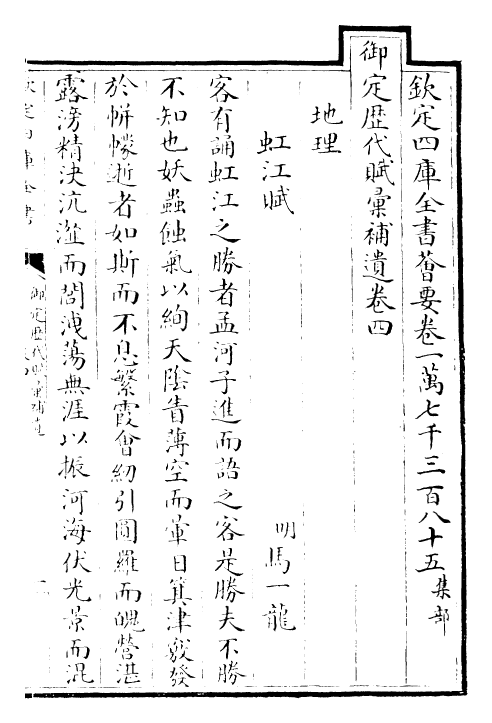 欽定四庫全書薈要卷一萬七千三百八十五 集部
御定歴代賦彙補遺卷四
地理
虹江賦
明馬一龍
客有誦虹江之勝者孟河子進而語之客是勝夫不勝
不知也妖蟲蝕氣以絢天陰眚薄空而暈日箕津竅發
於帡幪逝者如斯而不息繁霞會紉引圓羅而魄營湛
露滂精決沆瀣而閟洩蕩無涯以振河海伏光景而混
欽定四庫全書
御定歴代賦彙補遺